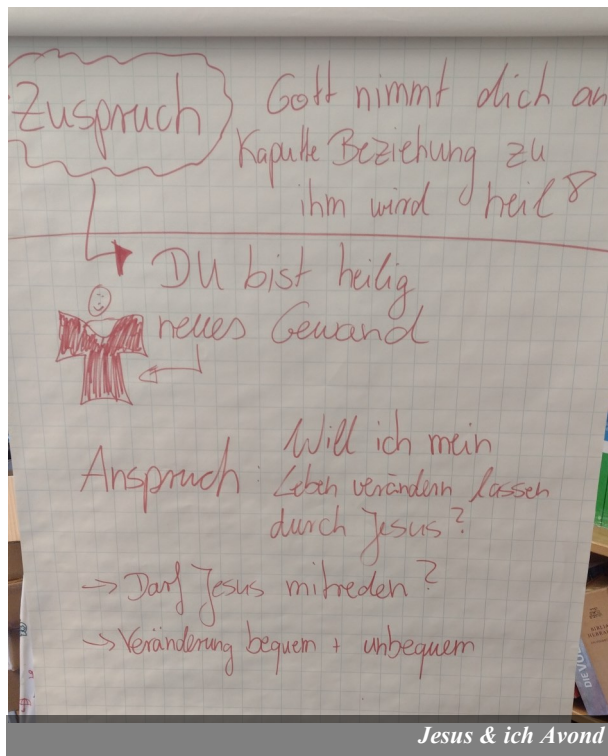 Zuspruch
Gott nimmt dich an
Kaputte Beziehung zu
ihm wird heil
DU bist heilig
neues Gewand
Anspruch: Will ich mein
Leben verändern lassen
durch Jesus?
→ Darf Jesus mitreden?
→ Veränderung bequem + unbequem
Jesus & ich Avond